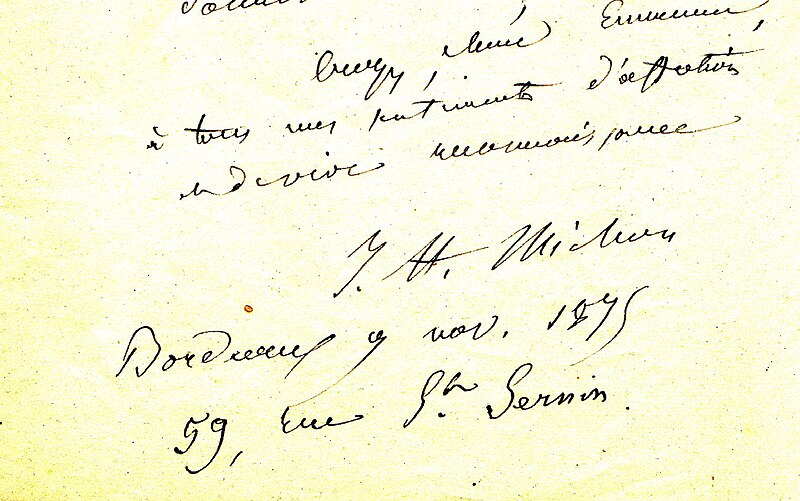 Croyez, chère Emma,
à tous mes sentiments d'affection
et de vive reconnaissance
J. H. Michon
Bordeaux 9 nov. 1875
59, rue St. Sernin.